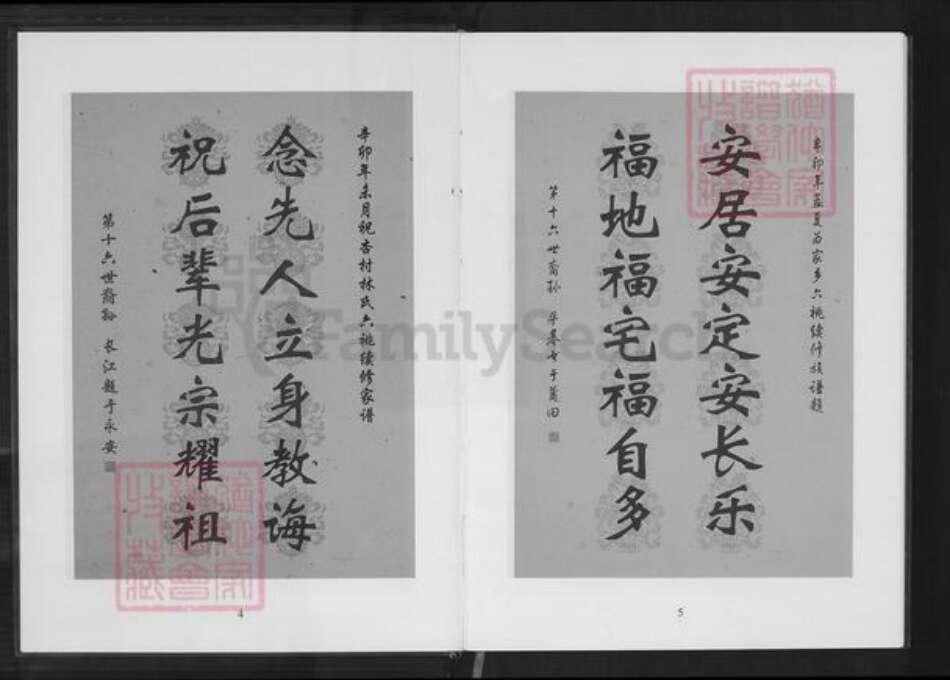 辛卯年末月祝杏村林氏六祧续修家谱
念先人立身教诲
祝后辈光宗耀祖
第十六世裔孙 长江题于永安
4
辛卯年孟夏为家乡六祧续修族谱题
安居安定安长乐
福地福宅福自多
第十六世裔孙 华春书于莆田
5
FamilySearch